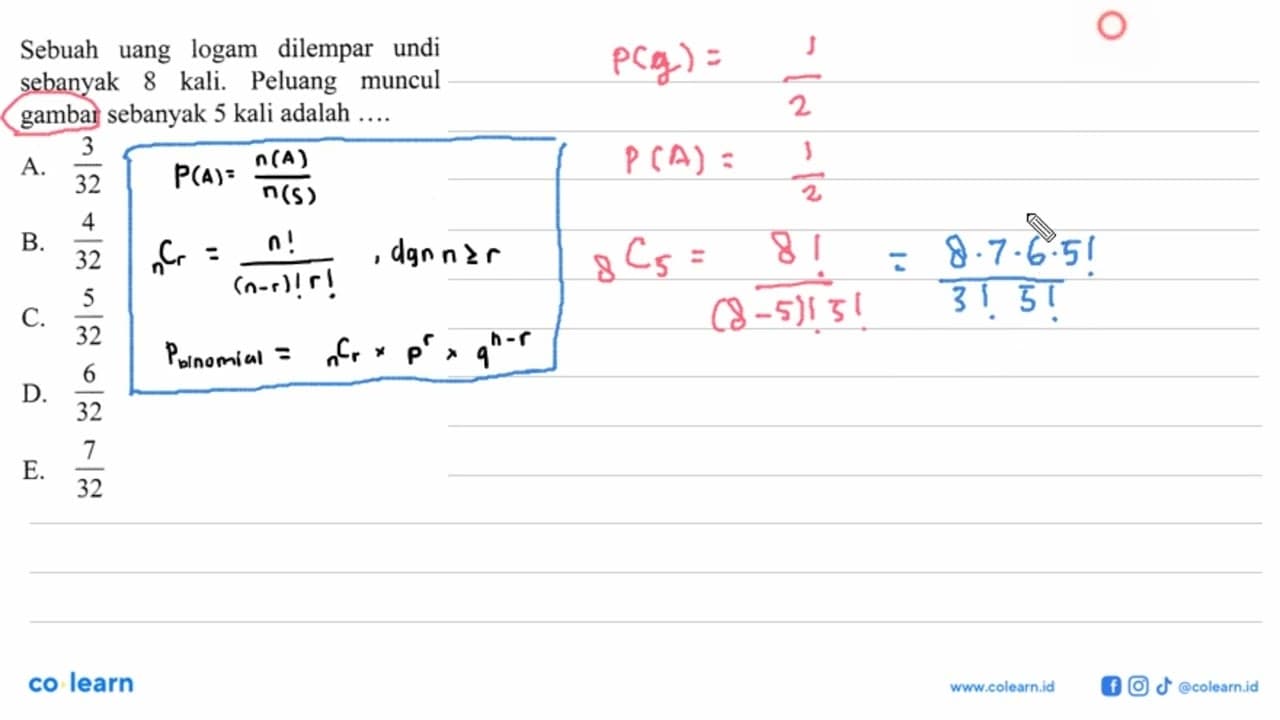 Sebuah uang logam dilempar undi
sebanyak 8 kali. Peluang muncul
gambar sebanyak 5 kali adalah ....
A. 3/32
B. 4/32
C. 5/32
D. 6/32
E. 7/32
P(A) = n(A)/n(S)
nCr = n!/(n-r)! r! , dgn n ≥ r
Pbinomial = nCr × p^r × q^n-r
P(g) = 1/2
P(A) = 1/2
8C5 = 8!/(8-5)! 5! = 8·7·6·5!/3! 5!
co learn
www.colearn.id
@colearn.id